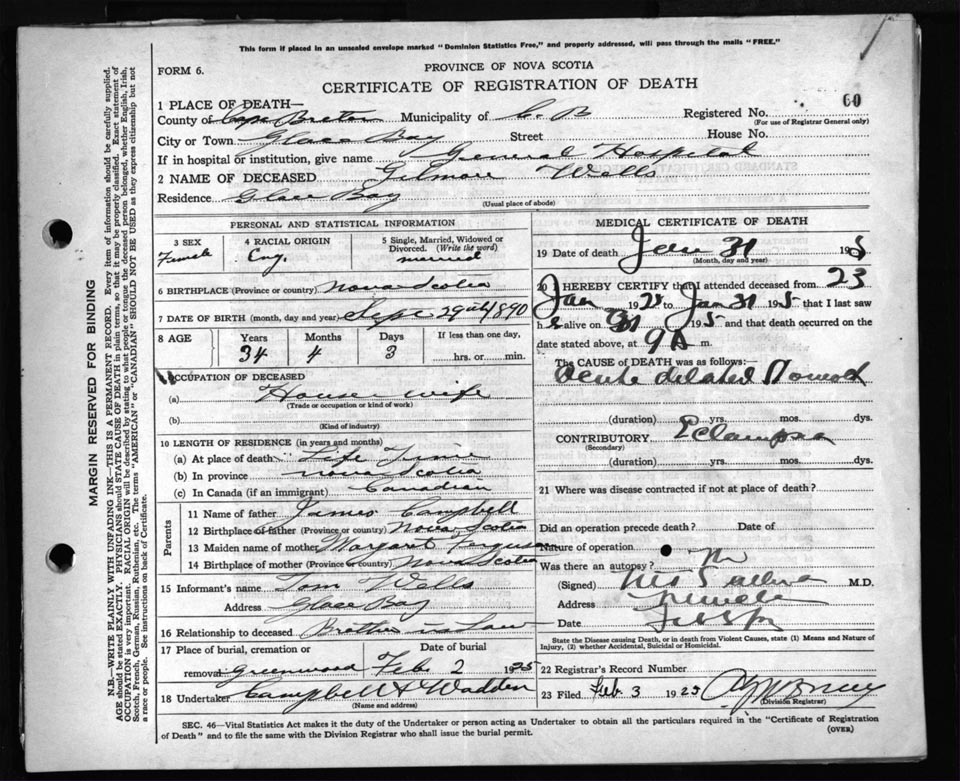 This form if placed in an unsealed envelope marked "Dominion Statistics Free," and properly addressed, will pass through the mails "FREE."
FORM 6.
PROVINCE OF NOVA SCOTIA
CERTIFICATE OF REGISTRATION OF DEATH
1 PLACE OF DEATH—
60
County of Cape Breton Municipality of C. B Registered No.
(For use of Registrar General only)
City or Town Glace Bay Street House No.
If in hospital or institution, give name General Hospital
2 NAME OF DECEASED Gilmore Wells
Residence Glace Bay
(Usual place of abode)
PERSONAL AND STATISTICAL INFORMATION
3 SEX 4 RACIAL ORIGIN 5 Single, Married, Widowed or Divorced. (Write the word)
Female Eng. married
6 BIRTHPLACE (Province or country) Nova Scotia
7 DATE OF BIRTH (month, day and year) Sept 29th 1890
8 AGE Years Months Days If less than one day,
34 4 3 hrs. or min.
OCCUPATION OF DECEASED
(a) House wife
(Trade or occupation or kind of work)
(b)
(Kind of industry)
10 LENGTH OF RESIDENCE (in years and months)
(a) At place of death Life Time
(b) In province Nova Scotia
(c) In Canada (if an immigrant) Canadian
Parents
11 Name of father James Campbell
12 Birthplace of father (Province or country) Nova Scotia
13 Maiden name of mother Margaret Ferguson
14 Birthplace of mother (Province or country) Nova Scotia
15 Informant's name Tom Wells
Address Glace Bay
16 Relationship to deceased Brother in Law
17 Place of burial, cremation or Date of burial
removal Greenwood Feb 2 1925
18 Undertaker Campbell & Wadden
(Name and address)
MEDICAL CERTIFICATE OF DEATH
19 Date of death 31 195
(Month, day and year)
20 I HEREBY CERTIFY that I attended deceased from 23
Jan 192 to Jan 31 195 that I last saw
h alive on 31 195 and that death occurred on the
date stated above, at 9 A m.
The CAUSE of DEATH was as follows:—
Acute dilated Stomach
(duration) yrs. mos. dys.
CONTRIBUTORY Eclampsia
(Secondary)
(duration) yrs. mos. dys.
21 Where was disease contracted if not at place of death?
Did an operation precede death? Date of
Nature of operation
Was there an autopsy? No
(Signed) M.D.
Address
Date
State the Disease causing Death, or in death from Violent Causes, state (1) Means and Nature of
Injury, (2) whether Accidental, Suicidal or Homicidal.
22 Registrar's Record Number
23 Filed Feb. 3 1925
(Division Registrar)
SEC. 46—Vital Statistics Act makes it the duty of the Undertaker or person acting as Undertaker to obtain all the particulars required in the "Certificate of Registration
of Death" and to file the same with the Division Registrar who shall issue the burial permit.
(OVER)
MARGIN RESERVED FOR BINDING
N.B.—WRITE PLAINLY WITH UNFADING INK—THIS IS A PERMANENT RECORD. Every item of information should be carefully supplied.
AGE should be stated EXACTLY. PHYSICIANS should STATE CAUSE OF DEATH in plain terms, so that it may be properly classified. Exact statement of
OCCUPATION is very important. RACIAL ORIGIN will be described by stating to what people or tongue the deceased person belonged, whether English, Irish,
Scotch, French, German, Russian, Ruthenian, etc. The terms "AMERICAN" or "CANADIAN" SHOULD NOT BE USED as they express citizenship but not
a race or people. See instructions on back of Certificate.